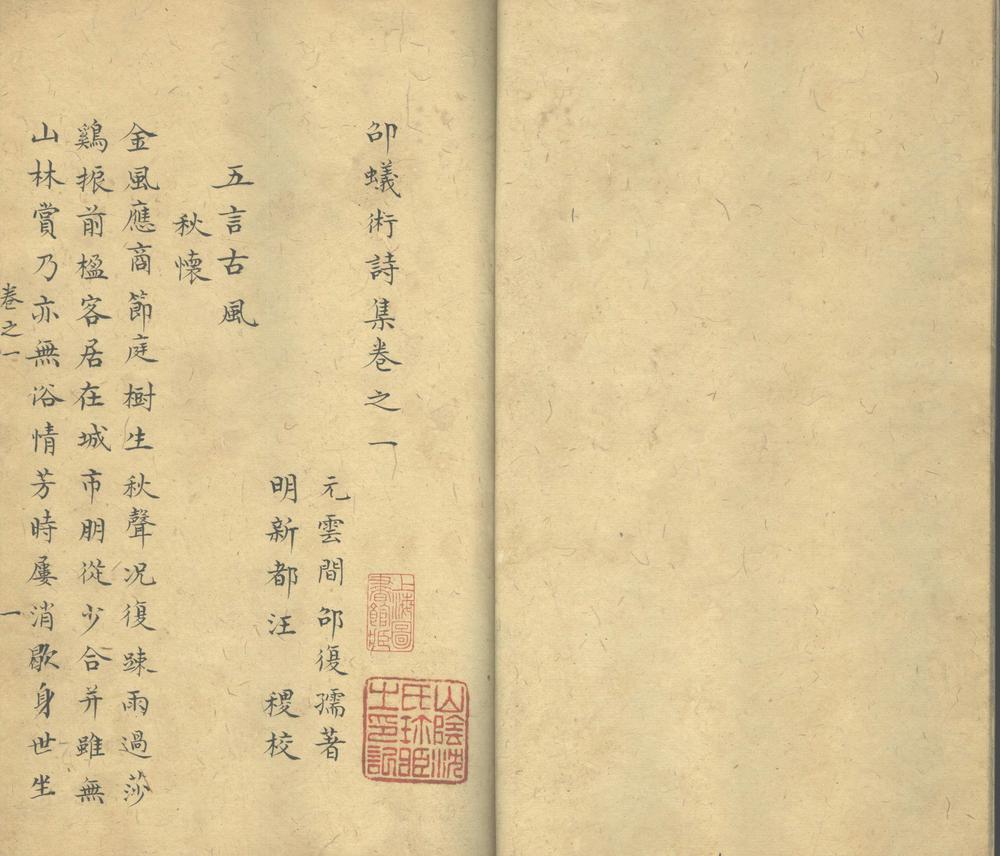 卲蟻術詩集卷之一
元雲間卲復孺著
明新都汪 稷校
五言古風
秋懷
金風應商節庭樹生秋聲况復踈雨過莎
鷄振前楹客居在城市朋從少合并雖無
山林賞乃亦無浴情芳時屢消歇身世坐
卷之一
一
上海圖書館藏
山陰沈氏珎臧之印記